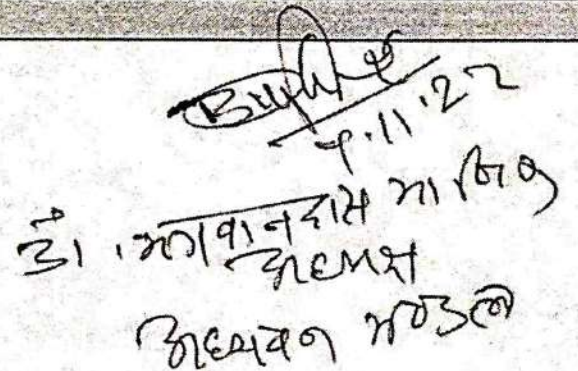 9.11.22
डॉ. भगवानदास माणिक
अध्यक्ष
अध्ययन मण्डल